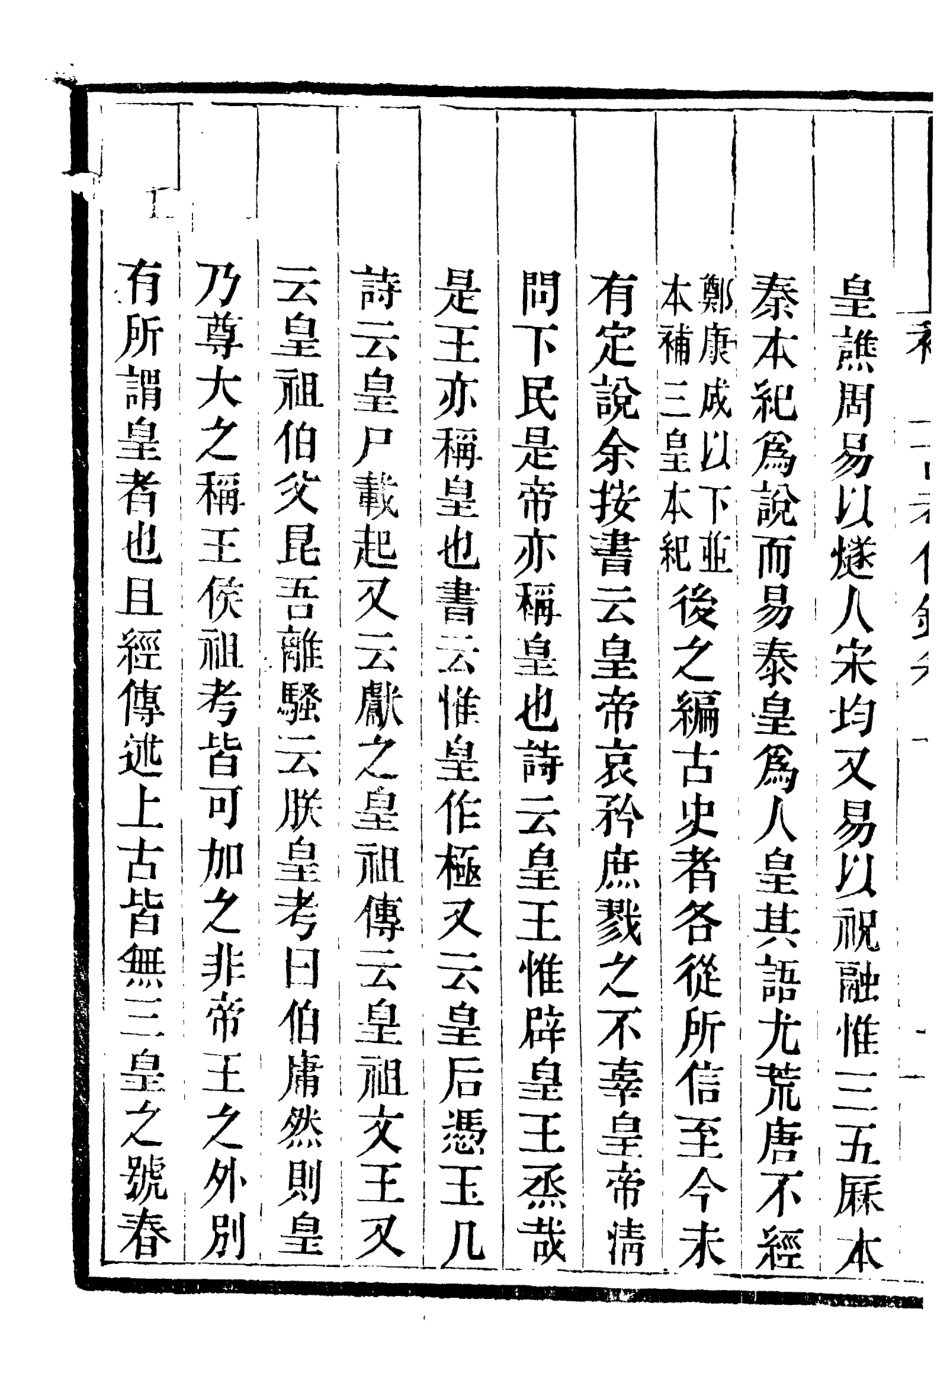 皇譙周易以燧人宋均又易以祝融惟三五厤本
秦本紀爲說而易泰皇爲人皇其語尤荒唐不經
鄭康成以下並
本補三皇本紀
後之編古史者各從所信至今未
有定說余按書云皇帝哀矜庶戮之不辜皇帝清
問下民是帝亦稱皇也詩云皇王惟辟皇王烝哉
是王亦稱皇也書云惟皇作極又云皇后憑玉几
詩云皇尸載起又云獻之皇祖傳云皇祖文王又
云皇祖伯父昆吾離騷云朕皇考曰伯庸然則皇
乃尊大之稱王侯祖考皆可加之非帝王之外別
有所謂皇者也且經傳述上古皆無三皇之號春